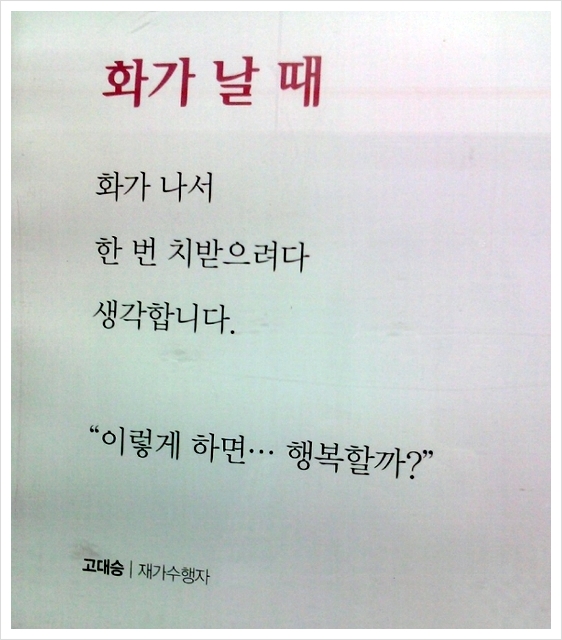 화가 날 때
화가 나서
한 번 치받으려다
생각합니다.
“이렇게 하면… 행복할까?”
고대승 | 재가수행자